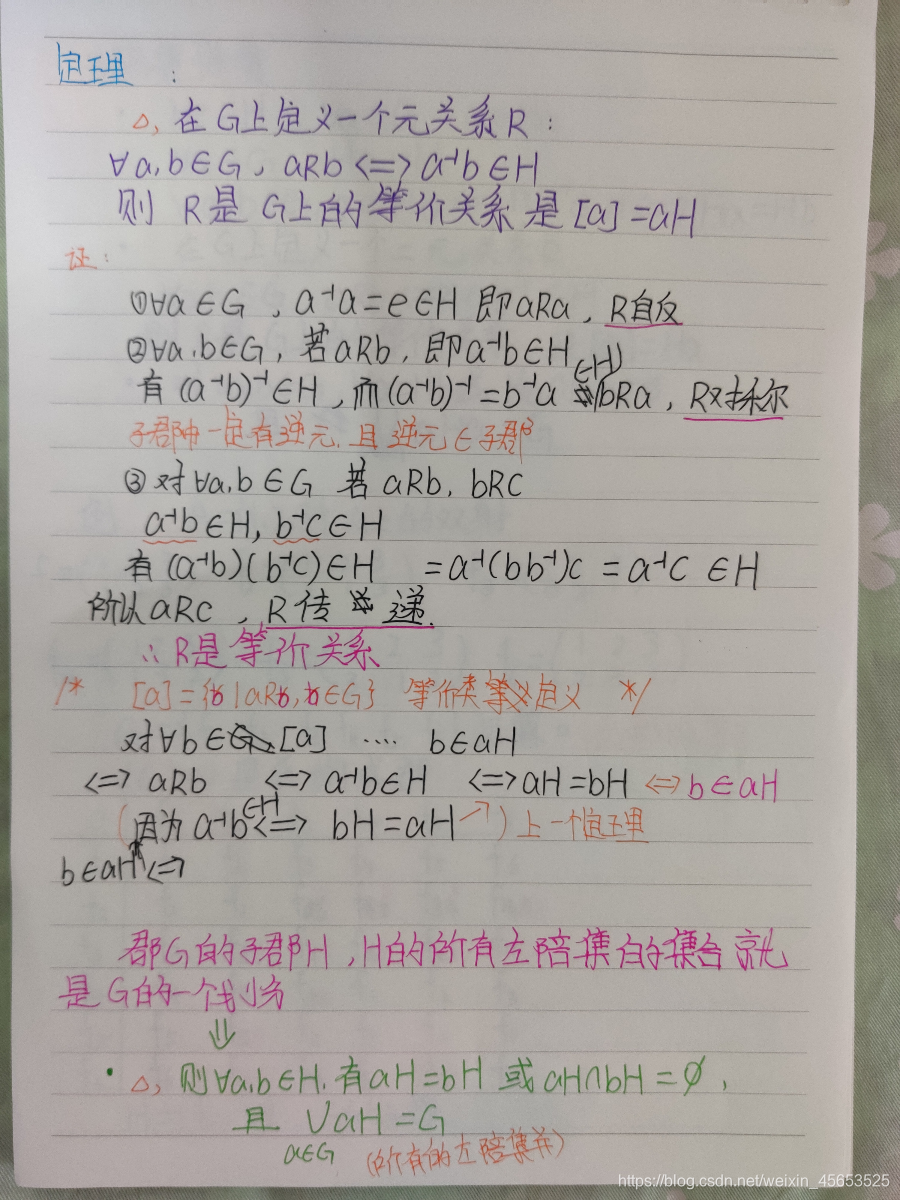 定理：
△, 在G上定义一个元关系R：
∀a,b∈G, aRb <=> a⁻¹b∈H
则 R是G上的等价关系 是[a]=aH
证：
①∀a∈G, a⁻¹a=e∈H 即aRa, R自反
②∀a.b∈G, 若aRb, 即a⁻¹b∈H
有(a⁻¹b)⁻¹∈H, 而(a⁻¹b)⁻¹=b⁻¹a (∈H) bRa, R对称尔
子群中一定有逆元. 且逆元∈子群
③对∀a.b∈G 若aRb, bRC
a⁻¹b∈H, b⁻¹c∈H
有(a⁻¹b)(b⁻¹c)∈H =a⁻¹(bb⁻¹)c =a⁻¹c ∈H
所以aRc, R传递.
∴R是等价关系
/* [a]={b|aRb,b∈G} 等价类定义 */
对∀b∈[a] .... b∈aH
<=> aRb <=> a⁻¹b∈H <=>aH=bH <=>b∈aH
(因为a⁻¹b∈H<=> bH=aH↗)上一个定理
b∈aH<=>
群G的子群H, H的所有左陪集的集合就
是G的一个划分
⇓
• △, 则∀a.b∈H.有aH=bH 或aH∩bH=∅,
且 ∪aH=G
a∈G (所有的左陪集并)
https://blog.csdn.net/weixin_45653525